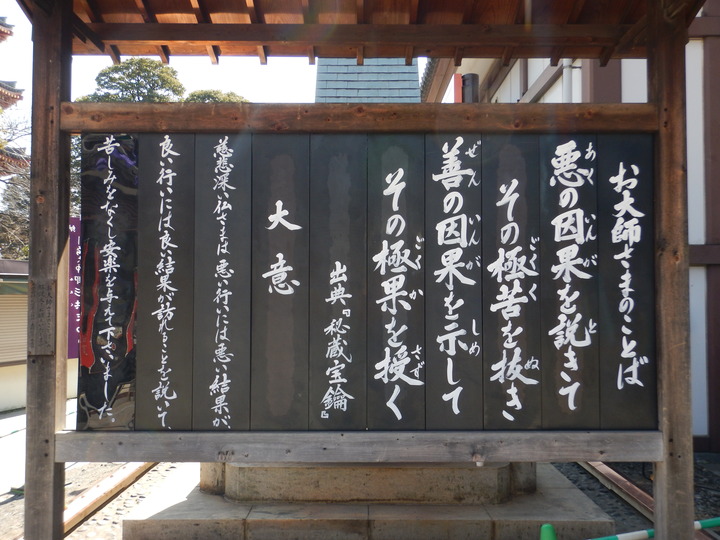 お大師さまのことば
悪の因果を説きて
あく いんが と
その極苦を抜き
ごくく ぬ
善の因果を示して
ぜん いんが しめ
その極果を授く
ごくか さず
出典『秘蔵宝鑰』
大意
慈悲深い仏さまは悪い行いには悪い結果が、
良い行いには良い結果が訪れることを説いて、
苦しみをなくし安楽を与えて下さいました。